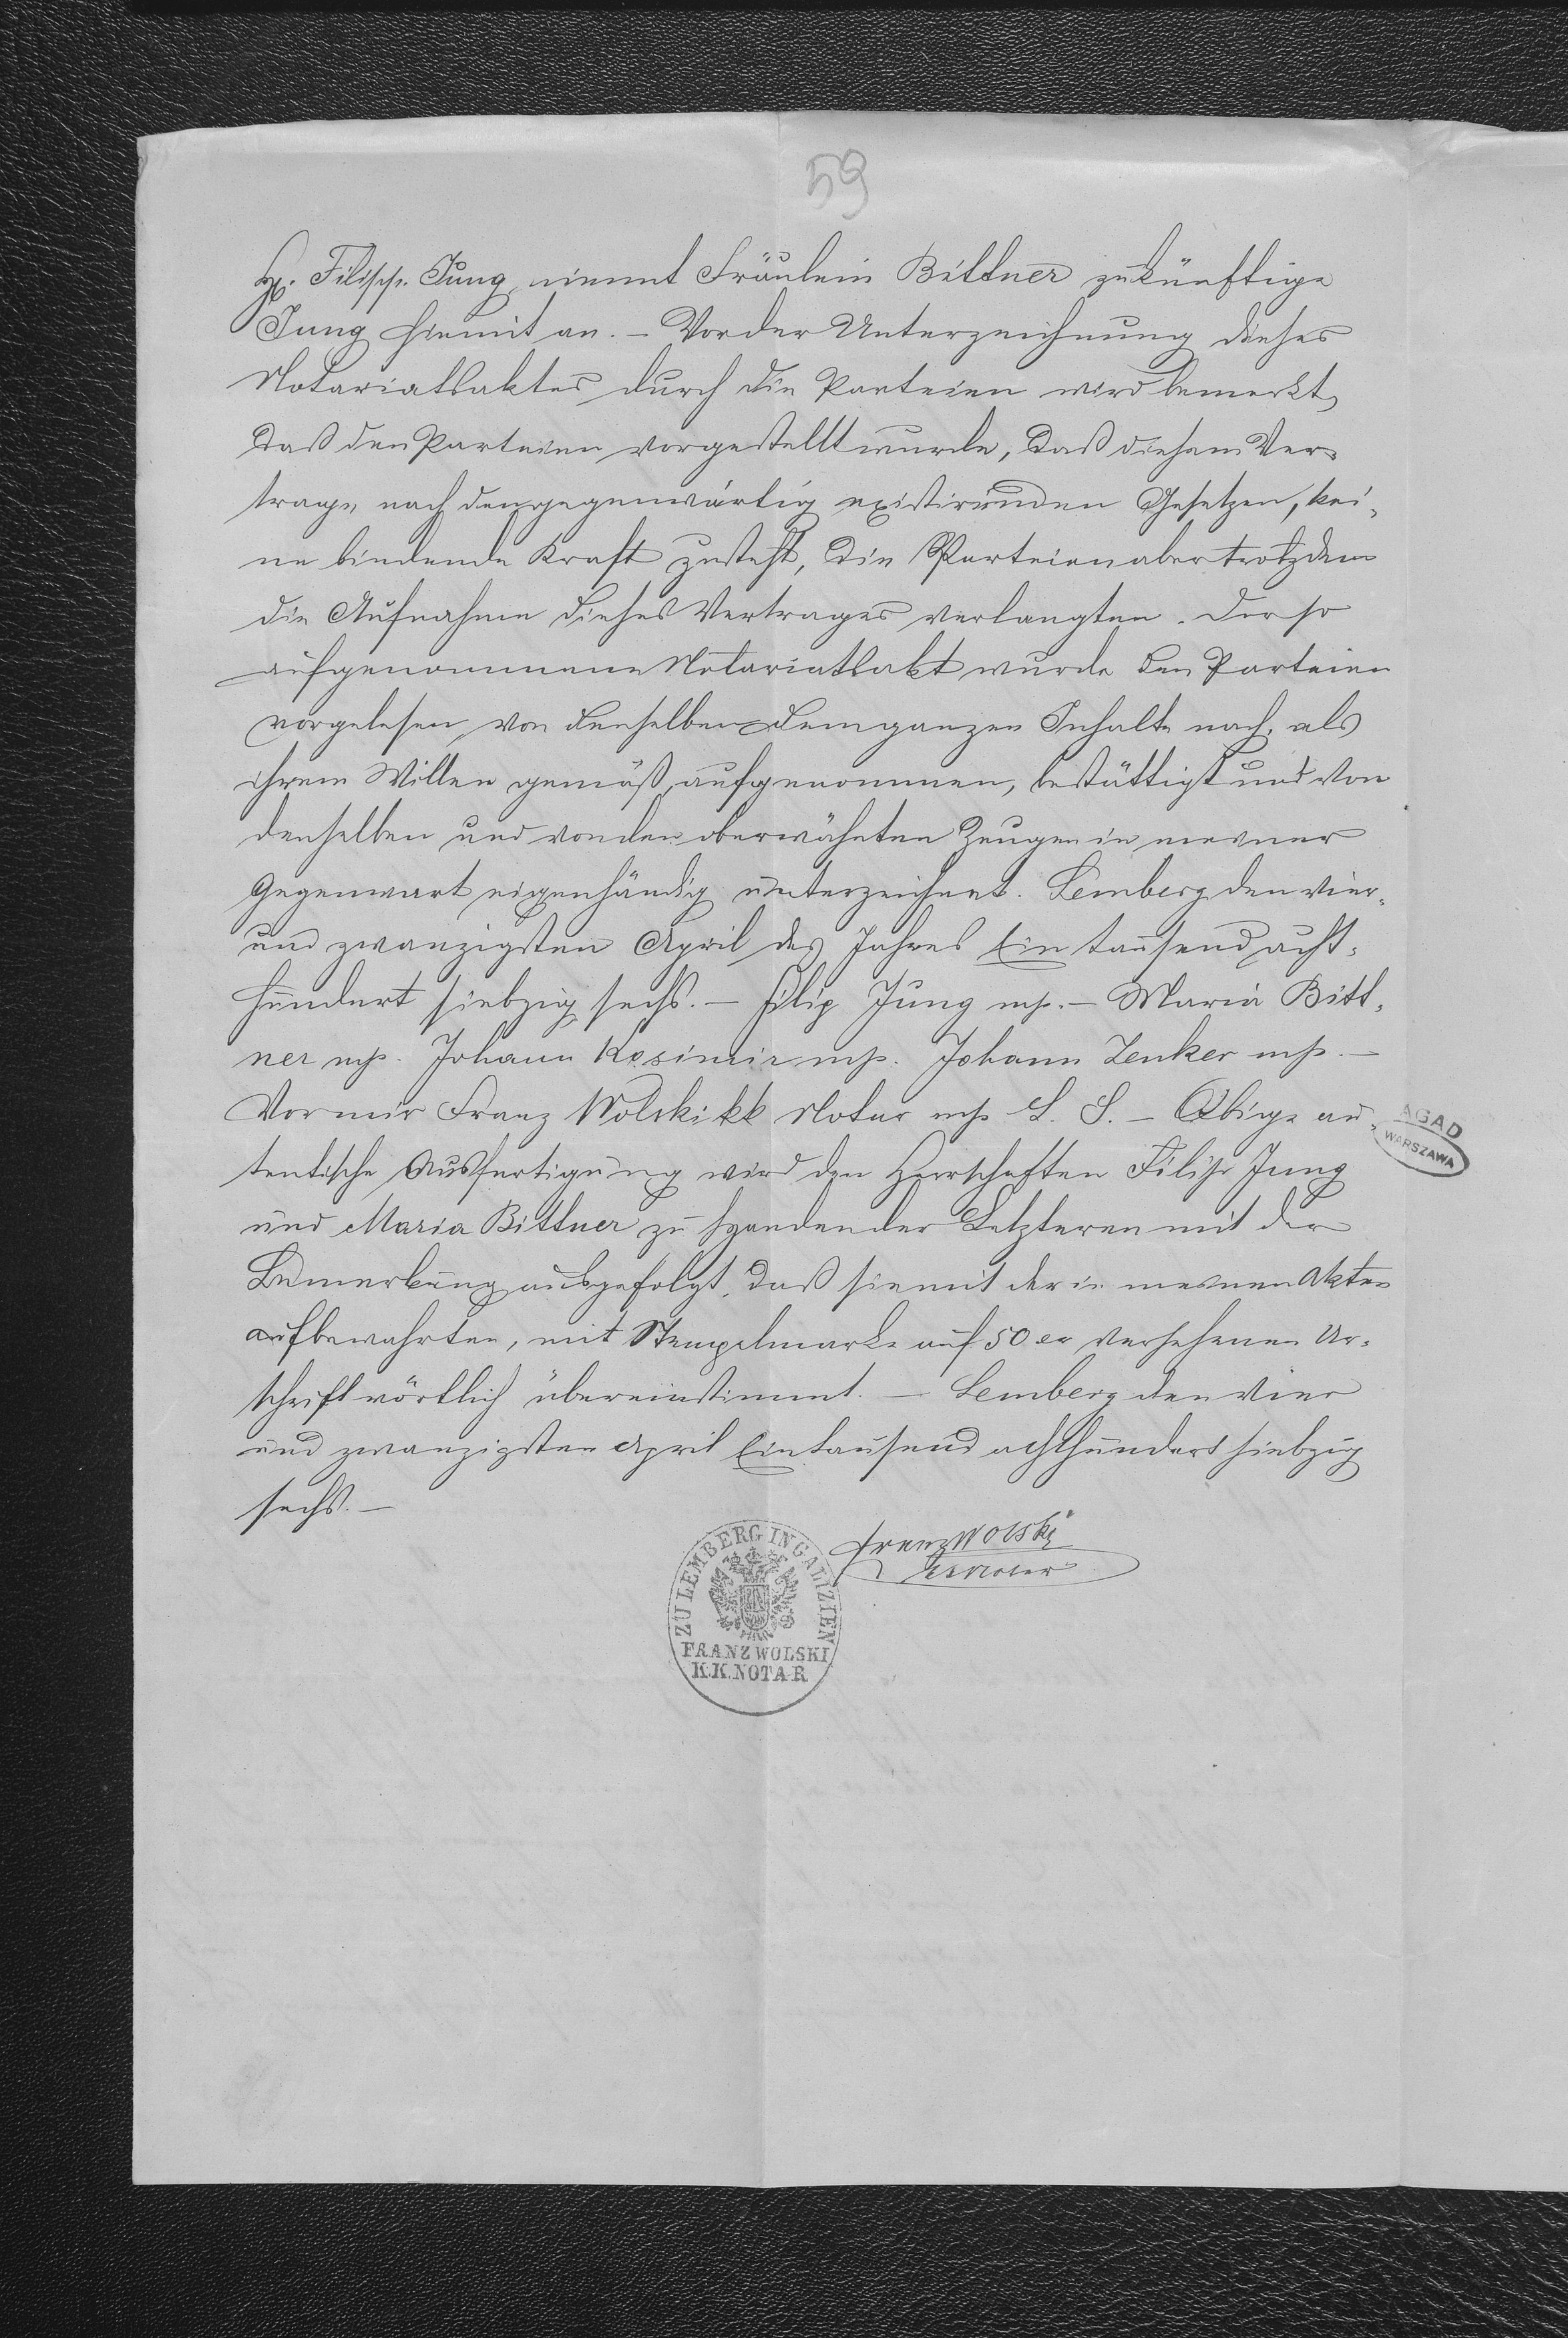 59
H. Filipp Jung, nimmt Fräulein Bittner zukünftige
Jung hiemit an. – Vor der Unterzeichnung dieses
Notariatsaktes durch die Parteien wird bemerkt,
daß den Parteien vorgestellt wurde, daß diesem Ver-
trage, nach den gegenwärtig existirenden Gesetzen, kei-
ne bindende Kraft zusteht, die Parteien aber trotzdem
die Aufnahme dieses Vertrages verlangten. Der so
aufgenommene Notariatsakt wurde den Parteien
vorgelesen, von denselben dem ganzen Inhalte nach, als
ihrem Willen gemäß, aufgenommen, bestättigt und von
denselben und von den oberwähnten Zeugen in meiner
Gegenwart eigenhändig unterzeichnet. Lemberg den vier-
und zwanzigsten April des Jahres Ein tausend acht-
hundert siebzig sechs. – Filip Jung mp. – Maria Bitt-
ner mp. Johann Kasimir mp. Johann Zenker mp. –
Vor mir Franz Wolski kk Notar mp L. S. – Obige au-
tentische Ausfertigung wird den Herrschaften Filip Jung
und Maria Bittner zu Handen der Letzteren mit der
Bemerkung ausgefolgt, daß sie mit der in meinen Akten
aufbewahrten, mit Stempelmarke auf 50 xr versehenen Ur-
schrift wörtlich übereinstimmt. – Lemberg den vier
und zwanzigsten April Eintausend achthundert siebzig
sechs. –
Franz Wolski
kk Notar
ZU LEMBERG IN GALIZIEN
FRANZ WOLSKI
K.K. NOTAR
AGAD
WARSZAWA